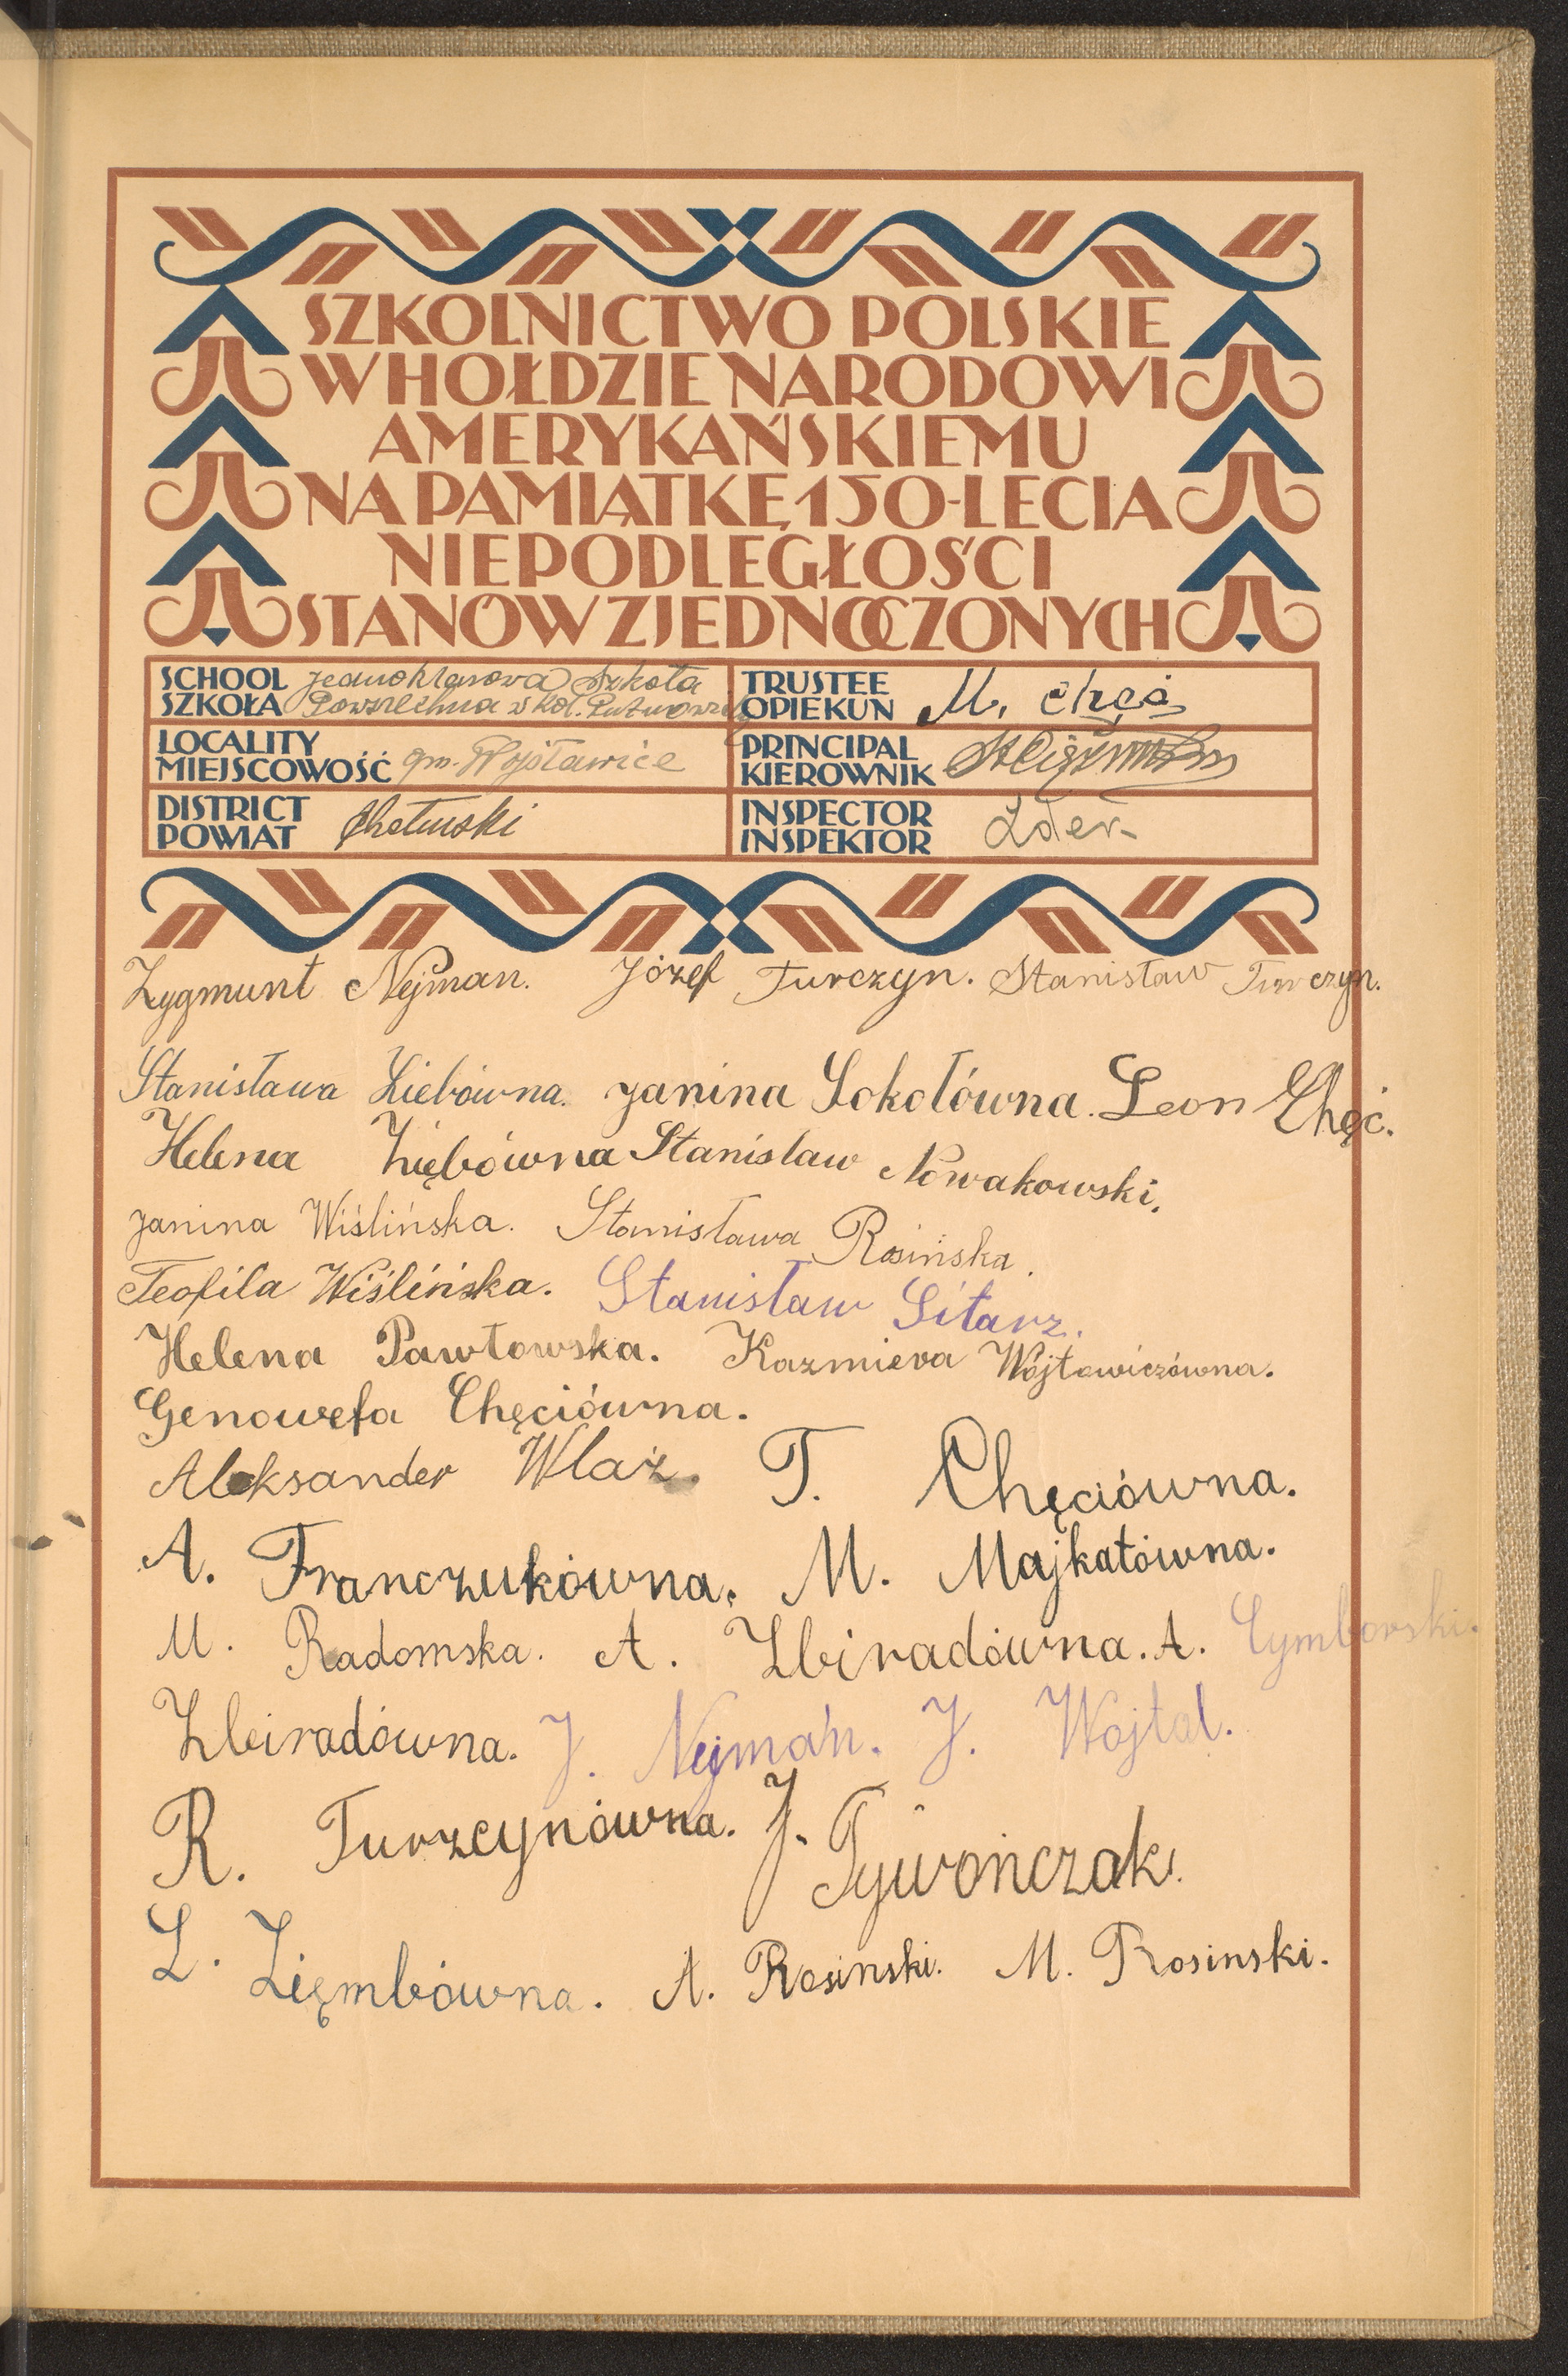 SZKOLNICTWO POLSKIE
W HOŁDZIE NARODOWI
AMERYKAŃSKIEMU
NA PAMIĄTKĘ 150-LECIA
NIEPODLEGŁOŚCI
STANÓW ZJEDNOCZONYCH
SCHOOL SZKOŁA jednoklasowa Szkoła
Powszechna w kol.
TRUSTEE OPIEKUN M. Chęć
LOCALITY MIEJSCOWOŚĆ gm. Wojsławice
PRINCIPAL KIEROWNIK
DISTRICT POWIAT Chełmski
INSPECTOR INSPEKTOR
Zygmunt Nejman. Józef Turczyn. Stanisław Turczyn.
Stanisława Ziebówna. Janina Sokołówna. Leon Chęć.
Helena Ziębówna Stanislaw Nowakowski.
Janina Wiślińska. Stanisława Rosińska.
Teofila Wiślińska. Stanisław Sitarz.
Helena Pawłowska. Kazmiera Wójtowiczówna.
Genowefa Chęciówna.
Aleksander Wlaź. T. Chęciówna.
A. Franczukówna. M. Majkatówna.
M. Radomska. A. Zbiradówna. A. Cymborski.
Zbiradówna. J. Nejmań. J. Wojtal.
R. Turzcynówna. J. Tywończak.
L. Zięmbówna. A. Rosinski. M. Rosinski.